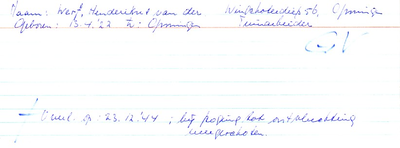 Naam: Werf, Hendericus van der Winschoterdiep 56, Groningen
Geboren: 13.4.'22 te: Groningen Tuinarbeider
Overl. op: 23.12.'44; bij poging tot ontvluchting
neergeschoten.